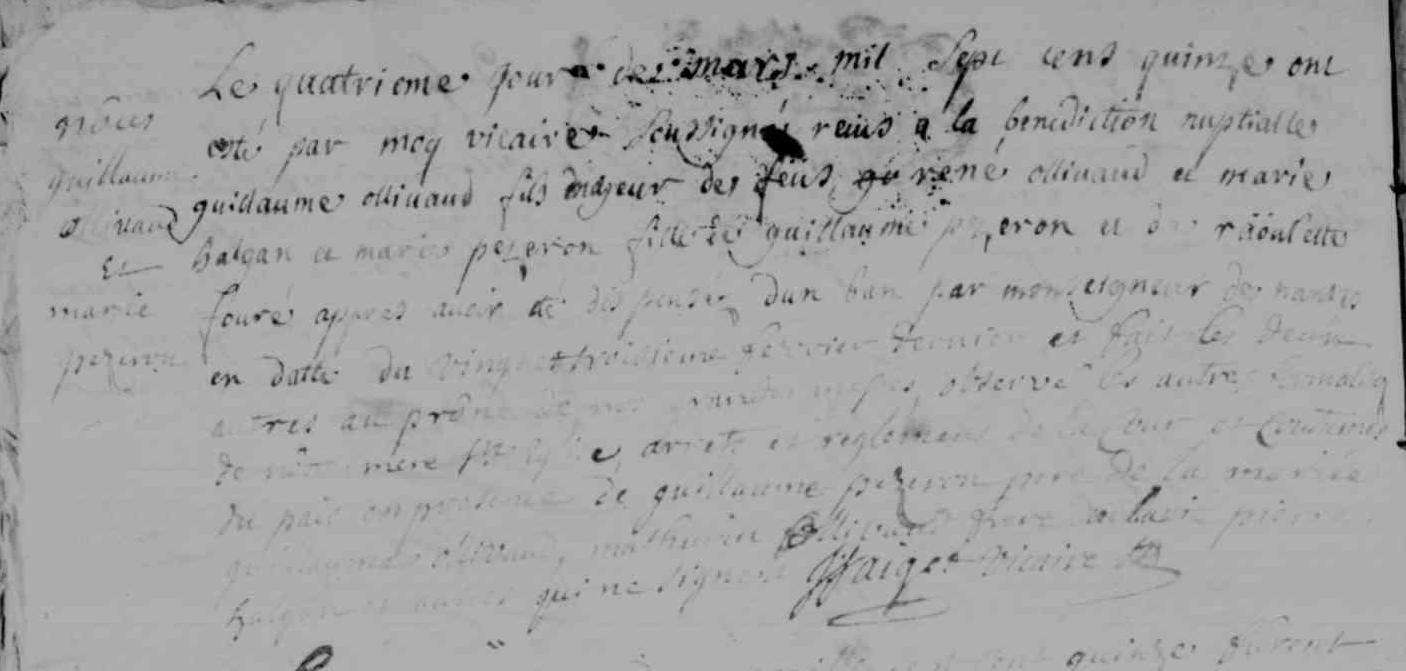 Le quatrieme jour de mars mil sept cens quinze ont
esté par moy vicaire soussigné reçus a la benediction nuptialle
guillaume ollivaud fils majeur des feus rené ollivaud et marie
halgan et marie pezeron fille de guillaume pezeron et de raoulette
fouré appres avoir été dispensé d'un ban par monseigneur de nantes
en datte du vingt troisieme fevrier dernier et fait les deux
autres au prône de nos grandes messes, observé les autres
de nôtre mere ste eglise, arrets et reglemens de la cour et coutumes
du païs en presence de guillaume pezeron pere de la mariée
guillaume ollivaud, mathurin ollivaud frere pierre
halgan et autres qui ne signent vicaire
nôces
guillaume
ollivaud
Et
marie
pezeron
quinze furent